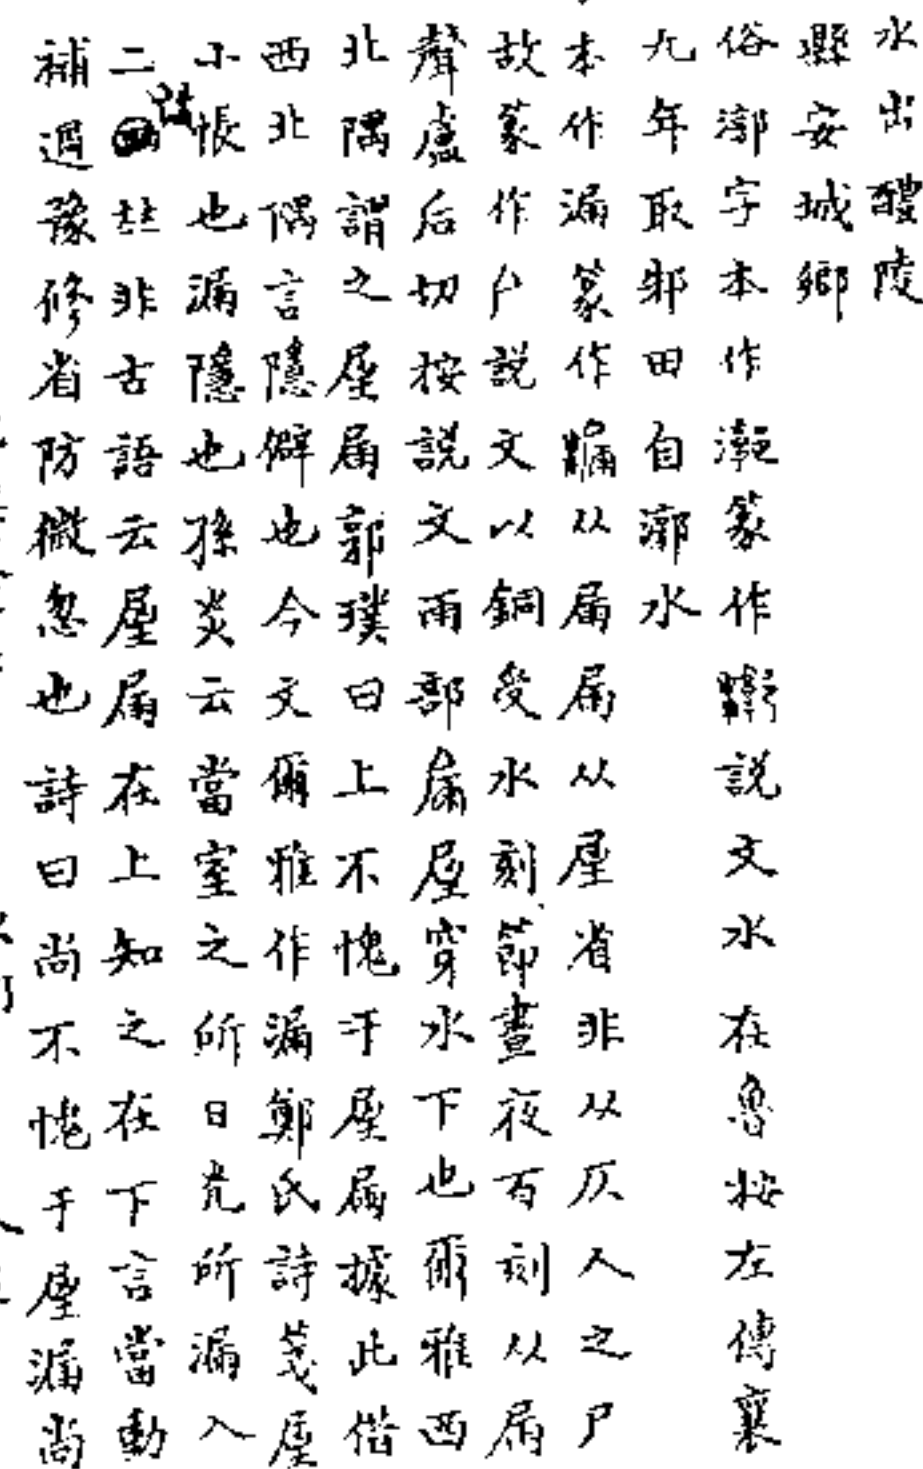 水出醴陵
縣安城鄉
俗漷字本作漷篆作說文水在魯按左傳襄
九年取邾田自漷水
本作漏篆作从屚屚从屋省非从仄人之尸
故篆作尸說文以銅受水刻節晝夜百刻从屚
聲盧后切按說文雨部屚屋穿水下也爾雅西
北隅謂之屋屚郭璞曰上不愧于屋屚據此借
西北隅言隱僻也今文爾雅作漏鄭氏詩箋屋
小帳也漏隱也孫炎云當室之所日光所漏入
二註非古語云屋屚在上知之在下言當動
補過豫修省防微忽也詩曰尚不愧于屋漏尚